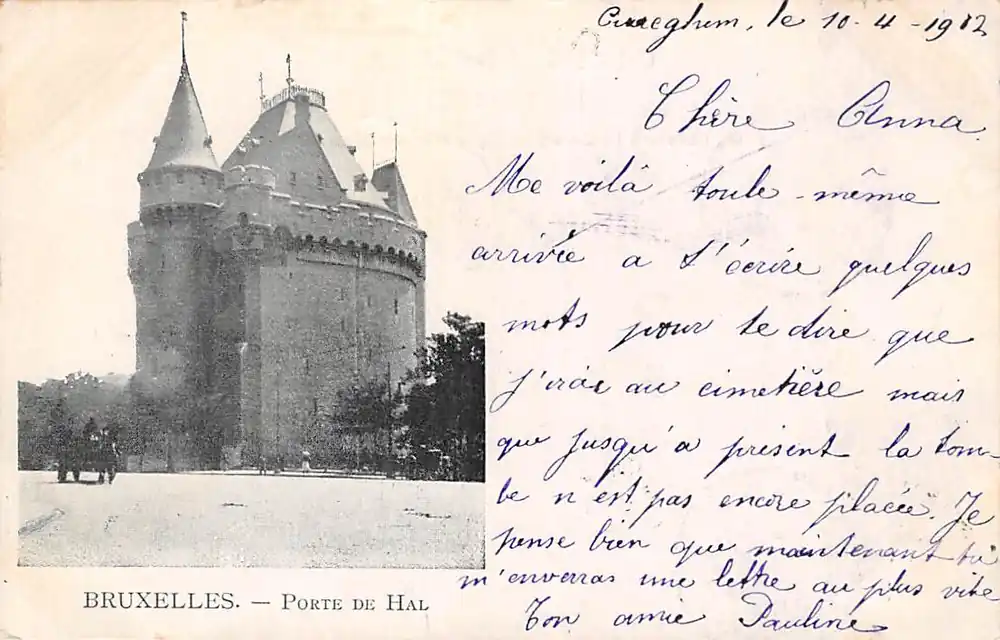 Cureghem, le 10-4-1912
Chère Anna
Me voilà toute-même
arrivée a t'écrire quelques
mots pour te dire que
j'irai au cimetière mais
que jusqu'a présent la tom-
be n'est pas encore placée. Je
pense bien que maintenant tu
m'enverras une lettre au plus vite
Ton amie Pauline
BRUXELLES. — PORTE DE HAL